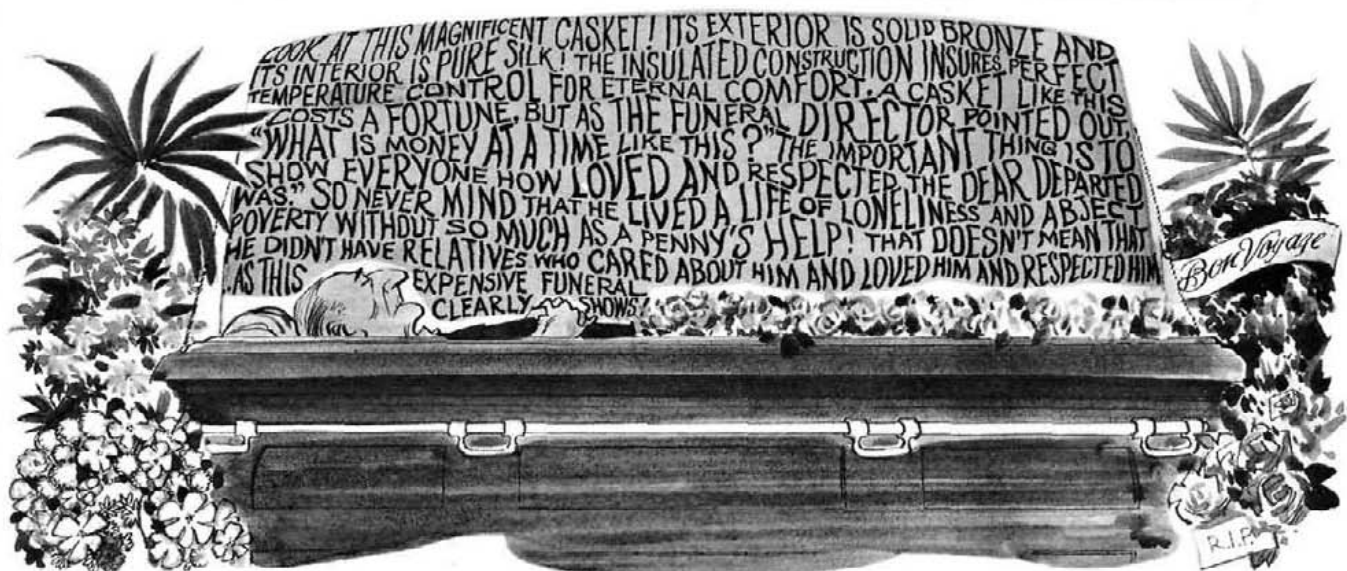 LOOK AT THIS MAGNIFICENT CASKET! ITS EXTERIOR IS SOLID BRONZE AND
ITS INTERIOR IS PURE SILK! THE INSULATED CONSTRUCTION INSURES PERFECT
TEMPERATURE CONTROL FOR ETERNAL COMFORT. A CASKET LIKE THIS
COSTS A FORTUNE, BUT AS THE FUNERAL DIRECTOR POINTED OUT,
"WHAT IS MONEY AT A TIME LIKE THIS?" THE IMPORTANT THING IS TO
SHOW EVERYONE HOW LOVED AND RESPECTED THE DEAR DEPARTED
WAS." SO NEVER MIND THAT HE LIVED A LIFE OF LONELINESS AND ABJECT
POVERTY WITHOUT SO MUCH AS A PENNY'S HELP! THAT DOESN'T MEAN THAT
HE DIDN'T HAVE RELATIVES WHO CARED ABOUT HIM AND LOVED HIM AND RESPECTED HIM
..AS THIS EXPENSIVE FUNERAL
CLEARLY SHOWS!
Bon Voyage
R.I.P.